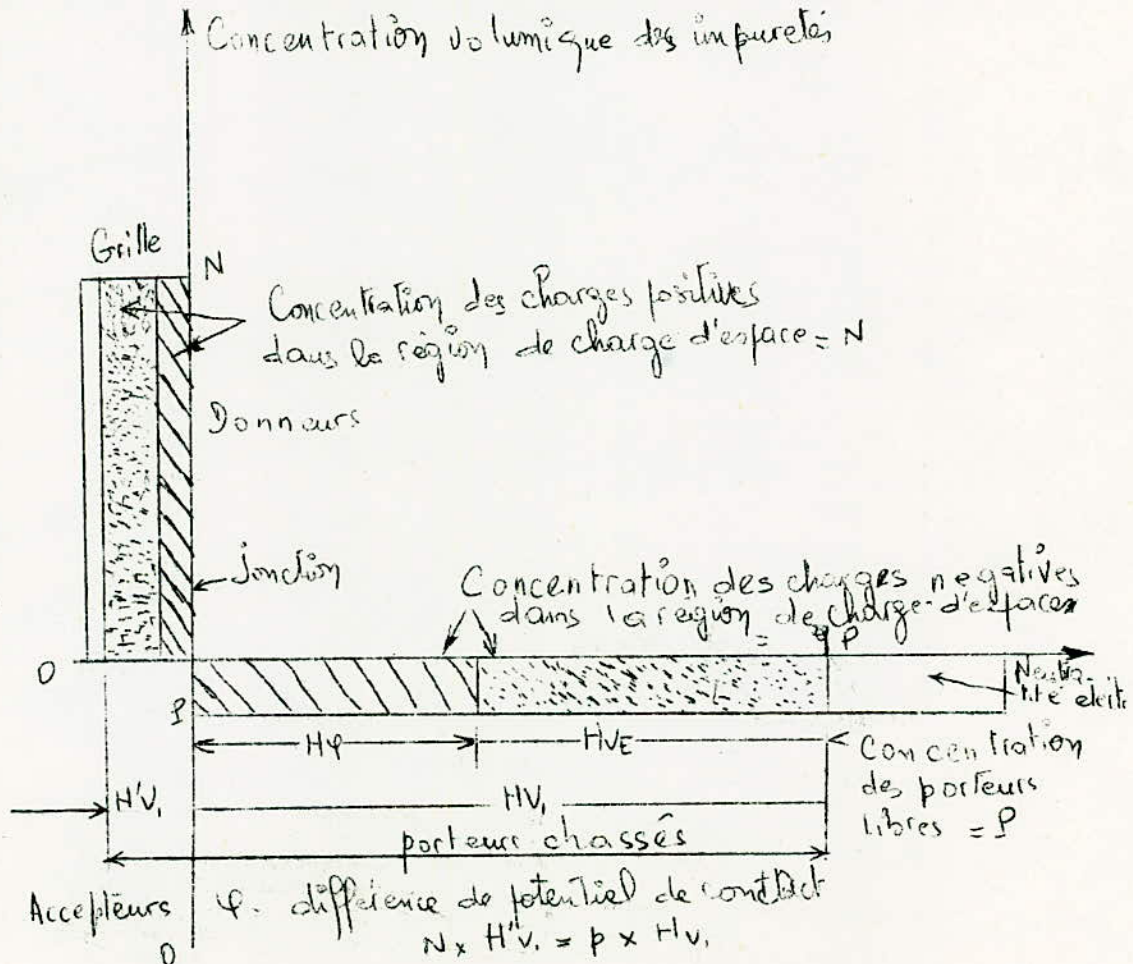 Concentration volumique des impuretés
Grille
N
Concentration des charges positives
dans la région de charge d'espace = N
Donneurs
Jonction
Concentration des charges negatives
dans la région de charge d'espace
= P
O
P
Hφ
HVE
Concentration
des porteurs
libres = P
H'V₁
HV₁
porteurs chassés
Accepteurs
φ. différence de potentiel de contact
N x H'V₁ = p x HV₁
O